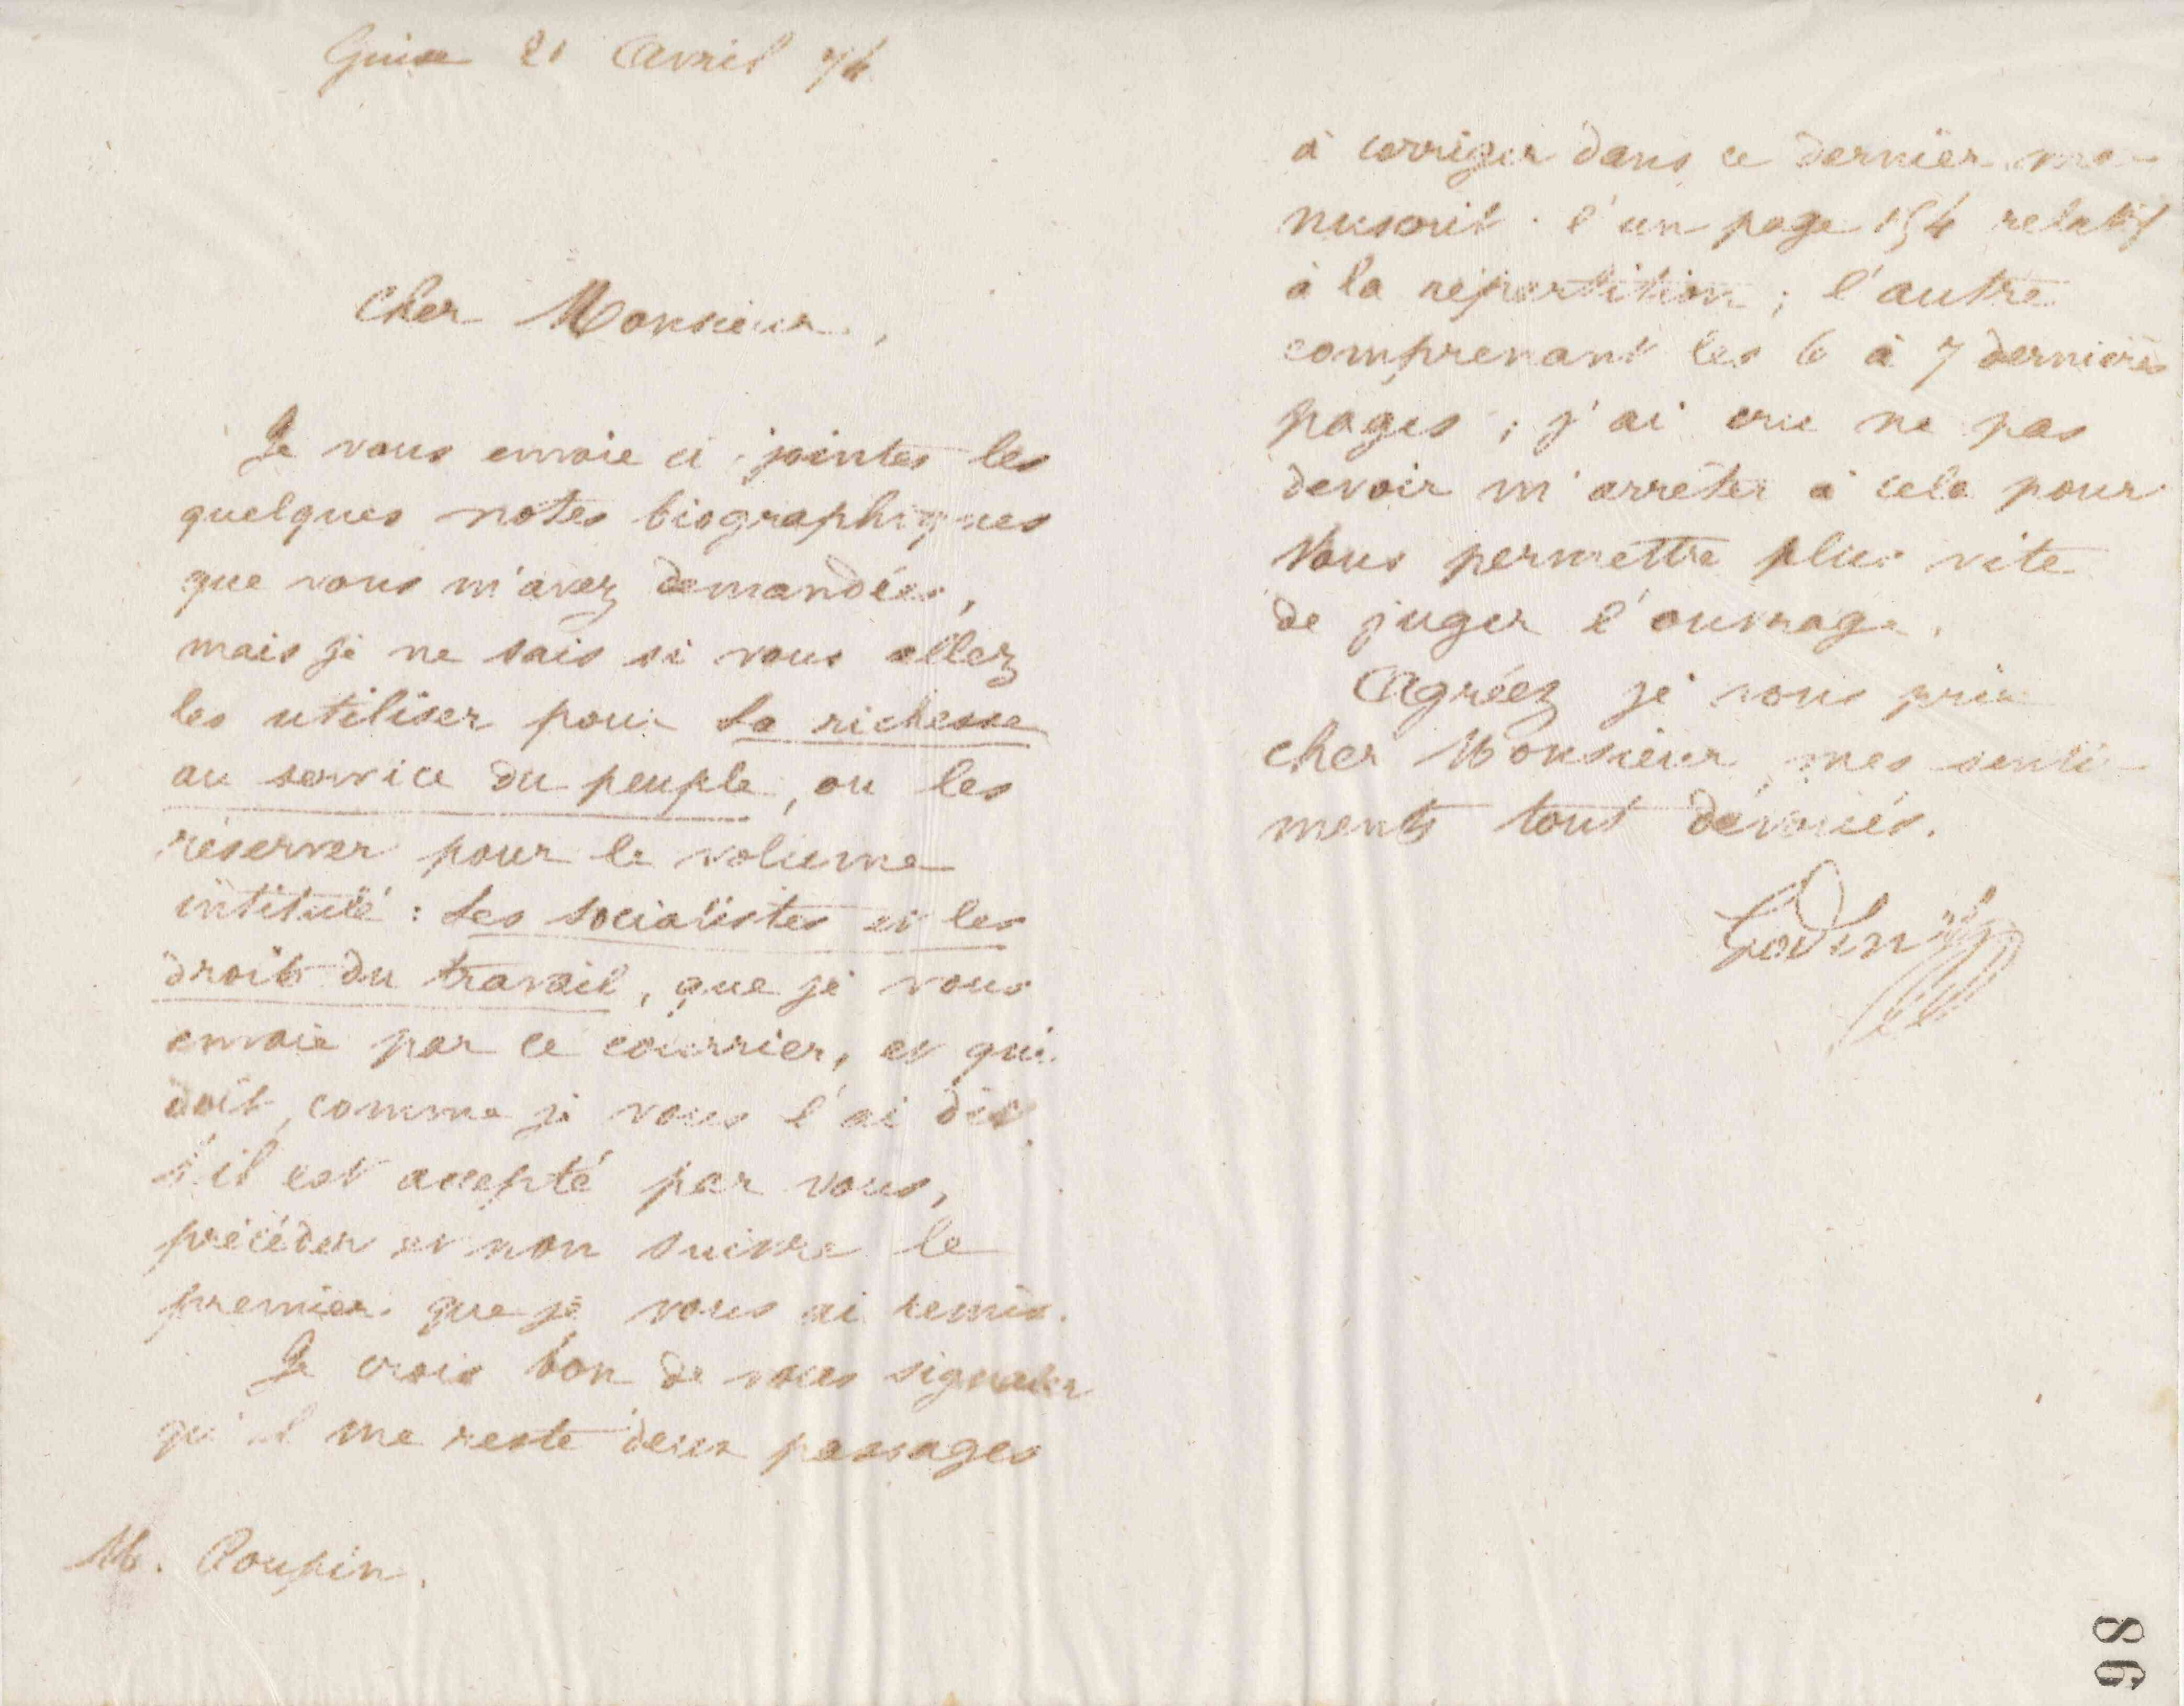 Guise 21 Avril 74
Cher Monsieur,
Je vous envoie ci jointes les
quelques notes biographiques
que vous m'avez demandées,
mais je ne sais si vous allez
les utiliser pour La richesse
au service du peuple, ou les
réserver pour le volume
intitulé : Les socialistes et les
droits du travail, que je vous
envoie par ce courrier, et qui
doit, comme je vous l'ai dit,
s'il est accepté par vous,
précéder et non suivre le
premier que je vous ai remis.
Je crois bon de vous signaler
qu'il me reste deux passages
M. Coupin.
à corriger dans ce dernier ma-
nuscrit. l'un page 154 relatif
à la répartition ; l'autre
comprenant les 6 à 7 dernières
pages ; j'ai cru ne pas
devoir m'arrêter à cela pour
vous permettre plus vite
de juger l'ouvrage.
Agréez je vous prie
cher Monsieur mes senti-
ments tout dévoués.
Godin
98